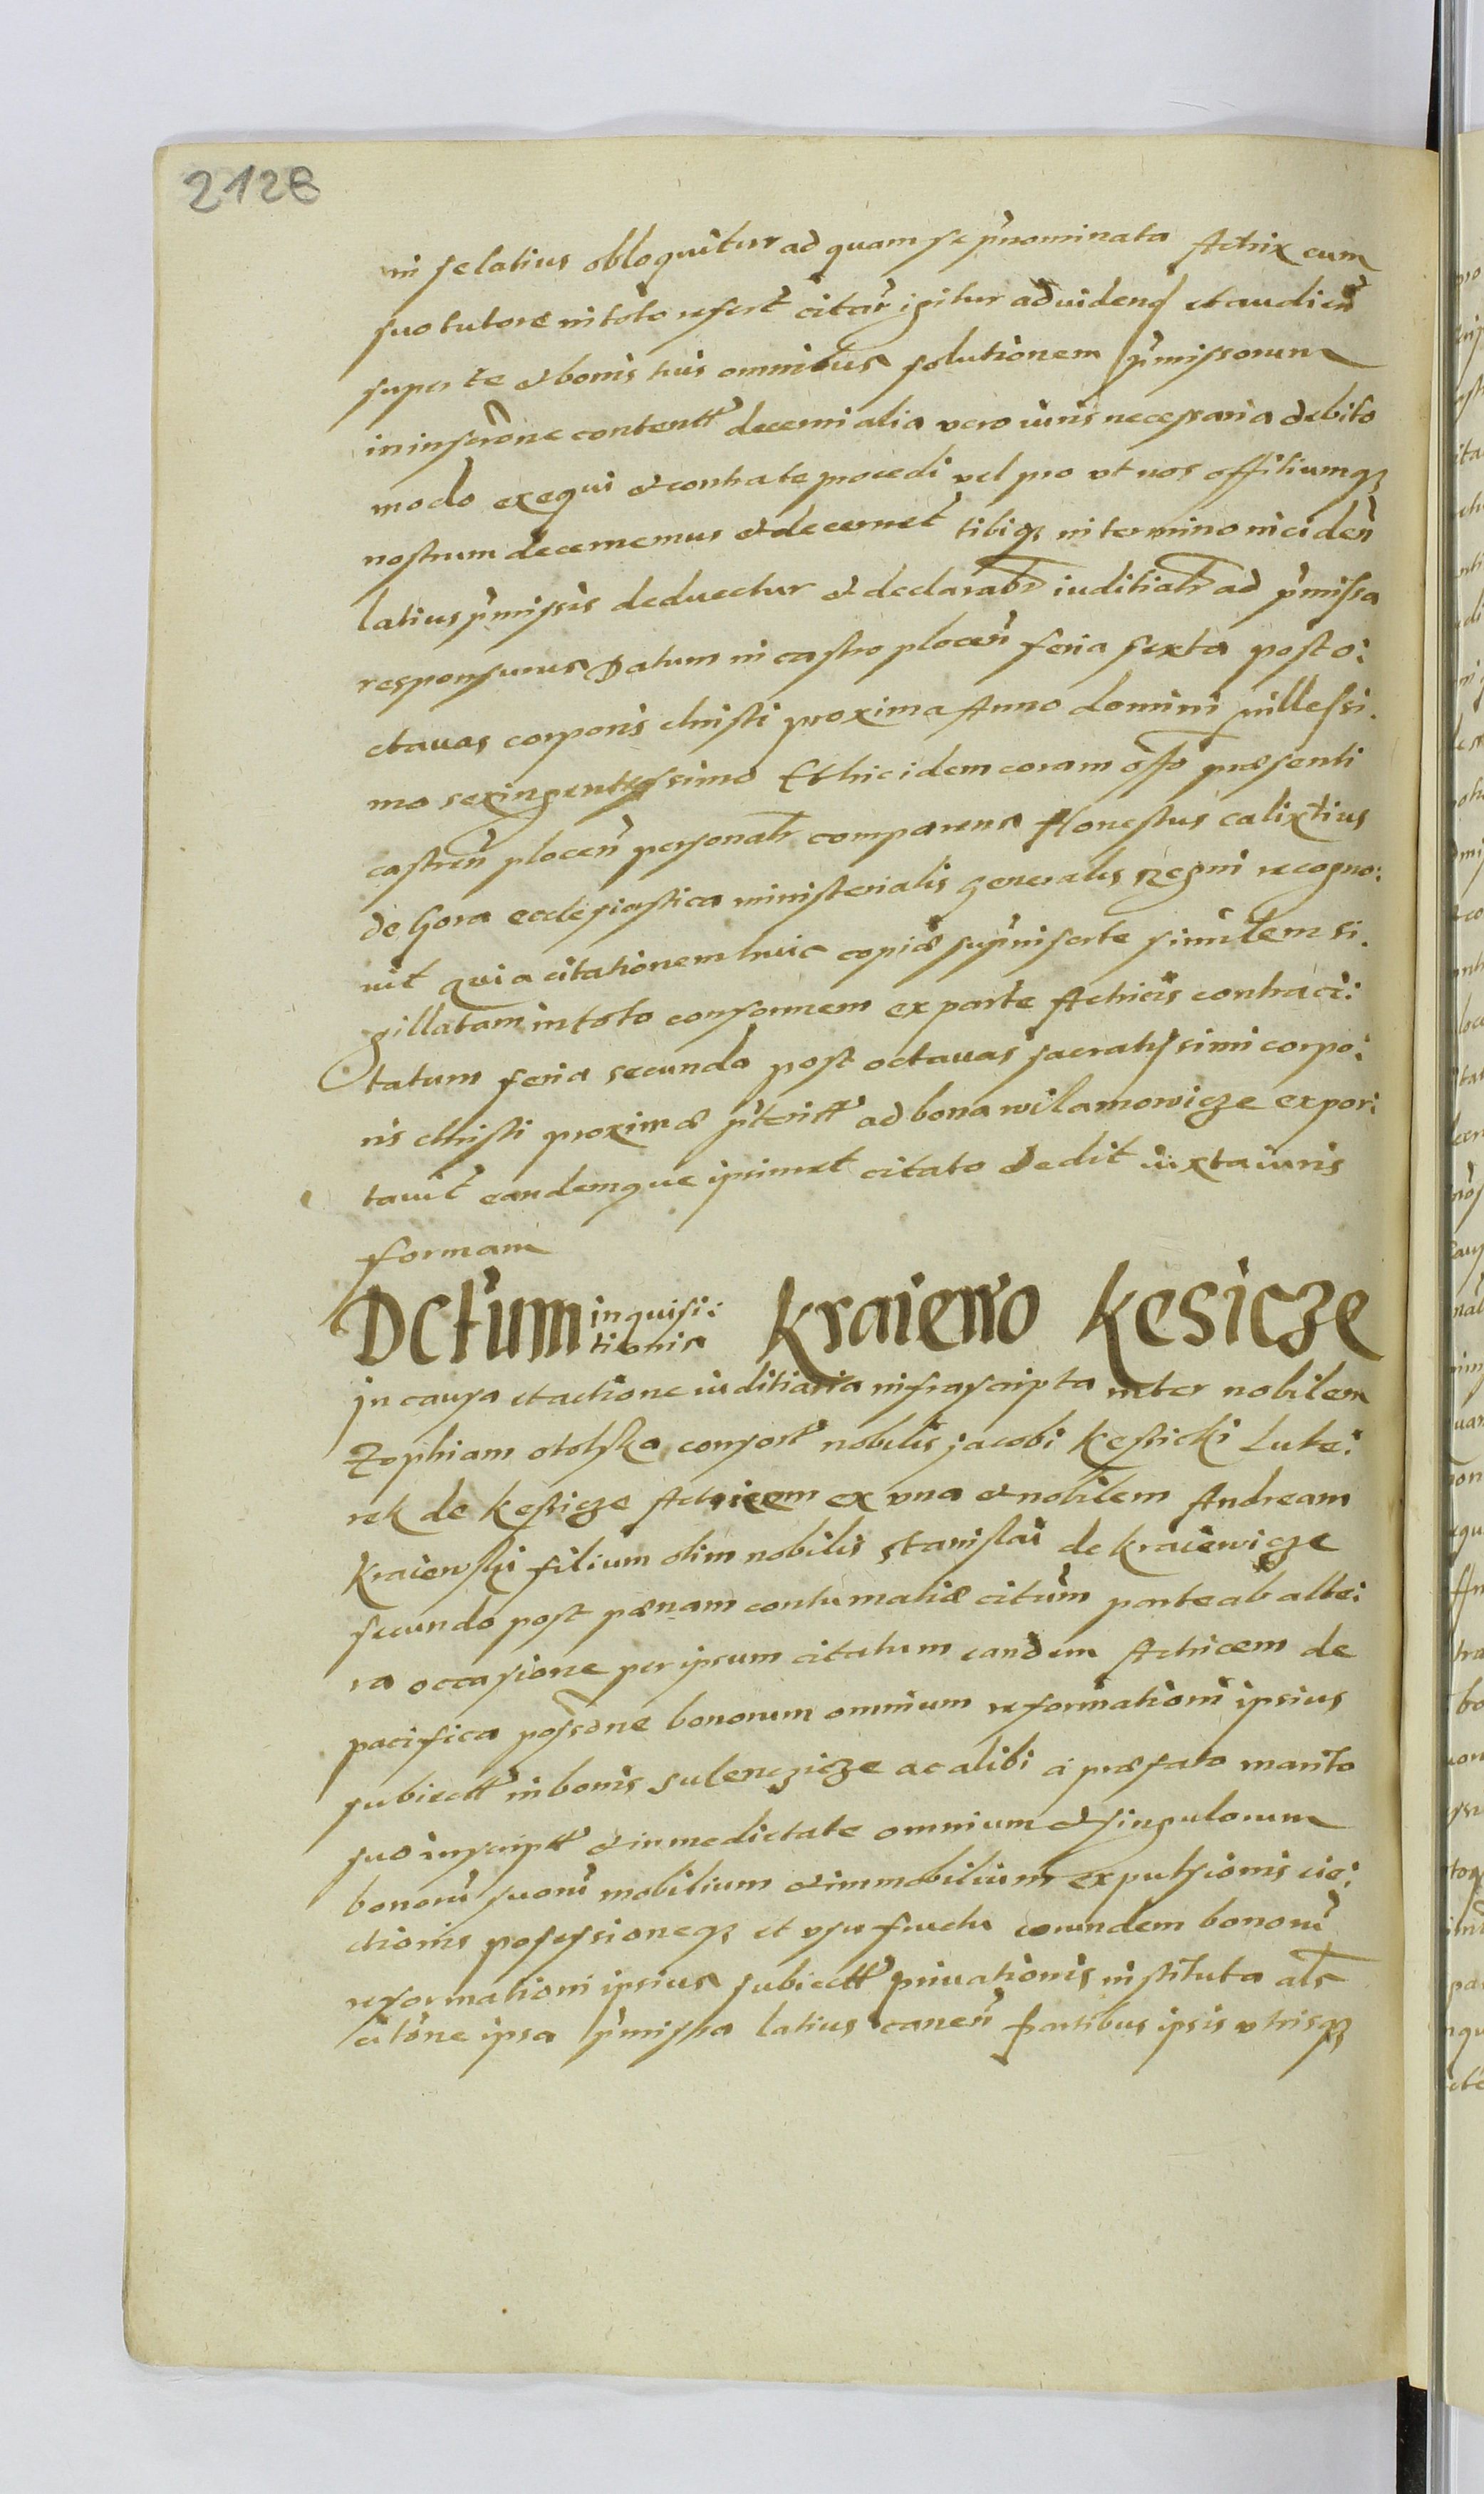 2128
in se latius obloquitur ad quam se p̃nominata Actrix cum
suo tutore in toto refert citař igitur ad videnđ et audieñ
super te et bonis tuis omnibus solutionem p̃missorum
in inscr̃one contentt decerni alia vero iuris necessaria debito
modo exequi et contra te procedi vel pro ut nos offitiumq;
nostrum decernemus et decernet tibiq; in termino inciden̄
latius p̃missis deducetur et declarabr̃ iuditialr̃ ad p̃missa
responsurus Datum in castro plocen̄ feria sexta post o:
ctauas corporis christi proxima Anno domini millessi.
mo sexingentessimo Et hic idem coram offo præsenti
castren̄ plocen̄ personalr̃ comparens Honestus calixtius
de Gora ecclesiastica ministerialis generalis Regni recogno:
uit quia citationem huic copiæ sup̃inserte similem si.
gillatam in toto conformem ex parte Actricis contra ci:
tatum feria secunda post octauas sacratissimi corpo:
ris christi proximæ p̃teritt ad bona wilamowicze expor:
tauit eandemque ipsimet citato dedit iuxta iuris
formam
Dctum inquisi:
tionis Kraiewo Kesicze
In causa et actione iuditiaria infrascripta inter nobilem
Zophiam ototska consort nobilis jacobi Kessicki Lute:
rek de Kessicze Actricem ex vna et nobilem Andream
Kraiewski filium olim nobilis stanislai de kraiewicze
secundo post pænam contumatiæ citum parte ab alte:
ra occasione per ipsum citatum eandem Actricem de
pacifica possone bonorum omnium reformationi ipsius
subiectt in bonis sulenczicze ac alibi a præfato marito
suo inscriptt et in medietate omnium et singulorum
bonorũ suorũ mobilium et immobilium expulsionis eie:
ctionis possessioneq; et vsu fructu eorundem bonorũ
reformationi ipsius subiectt priuationis instituta als̃
citõne ipsa p̃missa latius canen̄ partibus ipsis vtrisq;